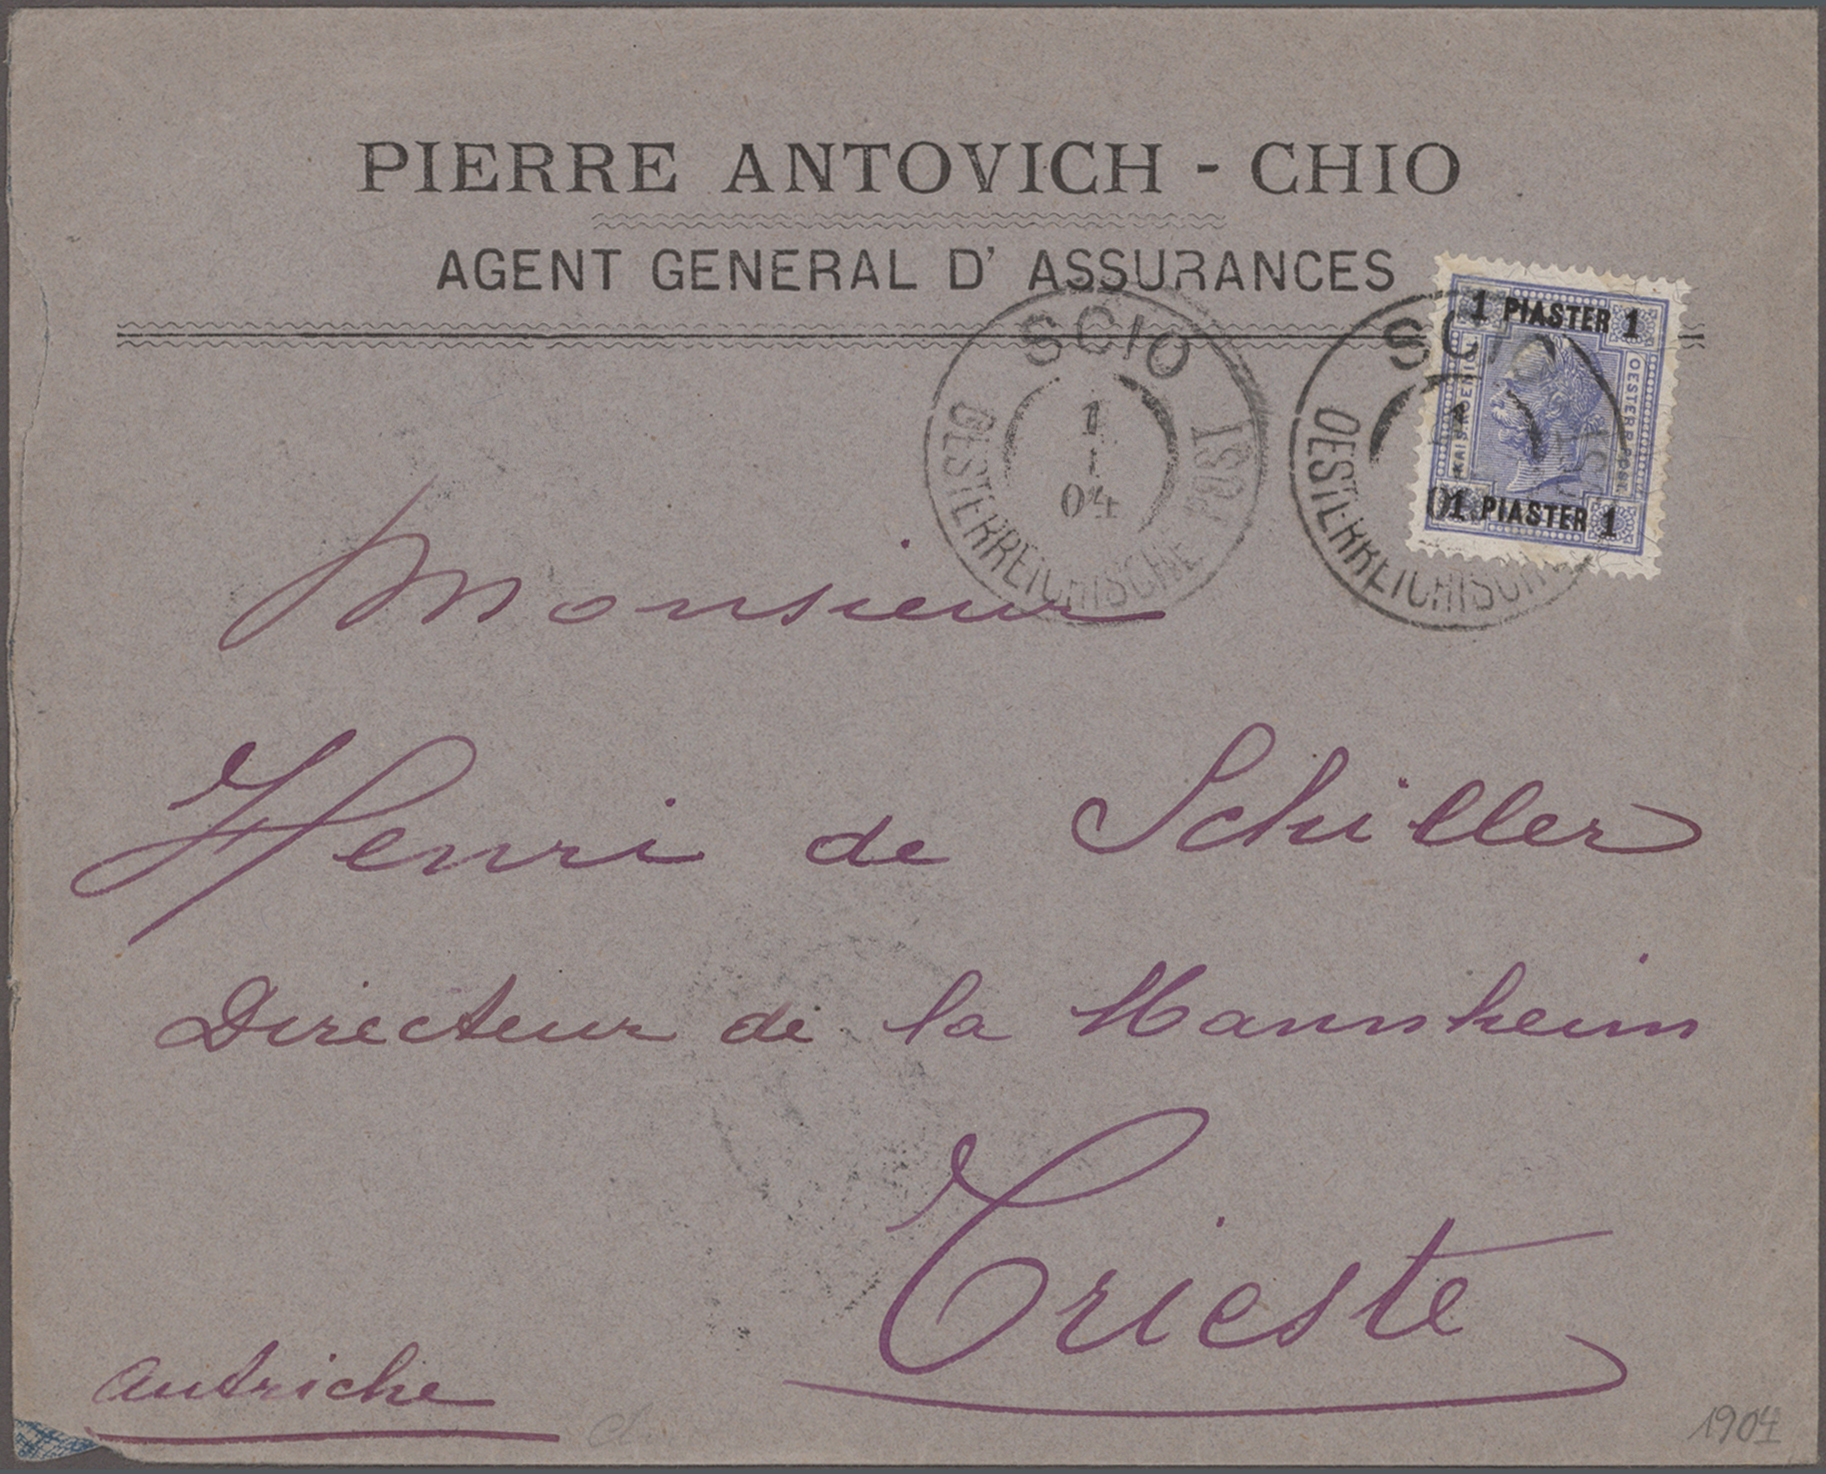 PIERRE ANTOVICH - CHIO
AGENT GENERAL D' ASSURANCES
1 PIASTER 1
KAIS. KOENIGL
OESTERR. POST
01 PIASTER 1
SCIO
1
I
04
OESTERREICHISCHE POST
SCIO
OESTERREICHISCHE
Monsieur
Henri de Schiller
Directeur de la Mannheim
Trieste
Autriche
1904